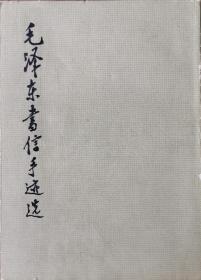 毛泽东書信手迹选